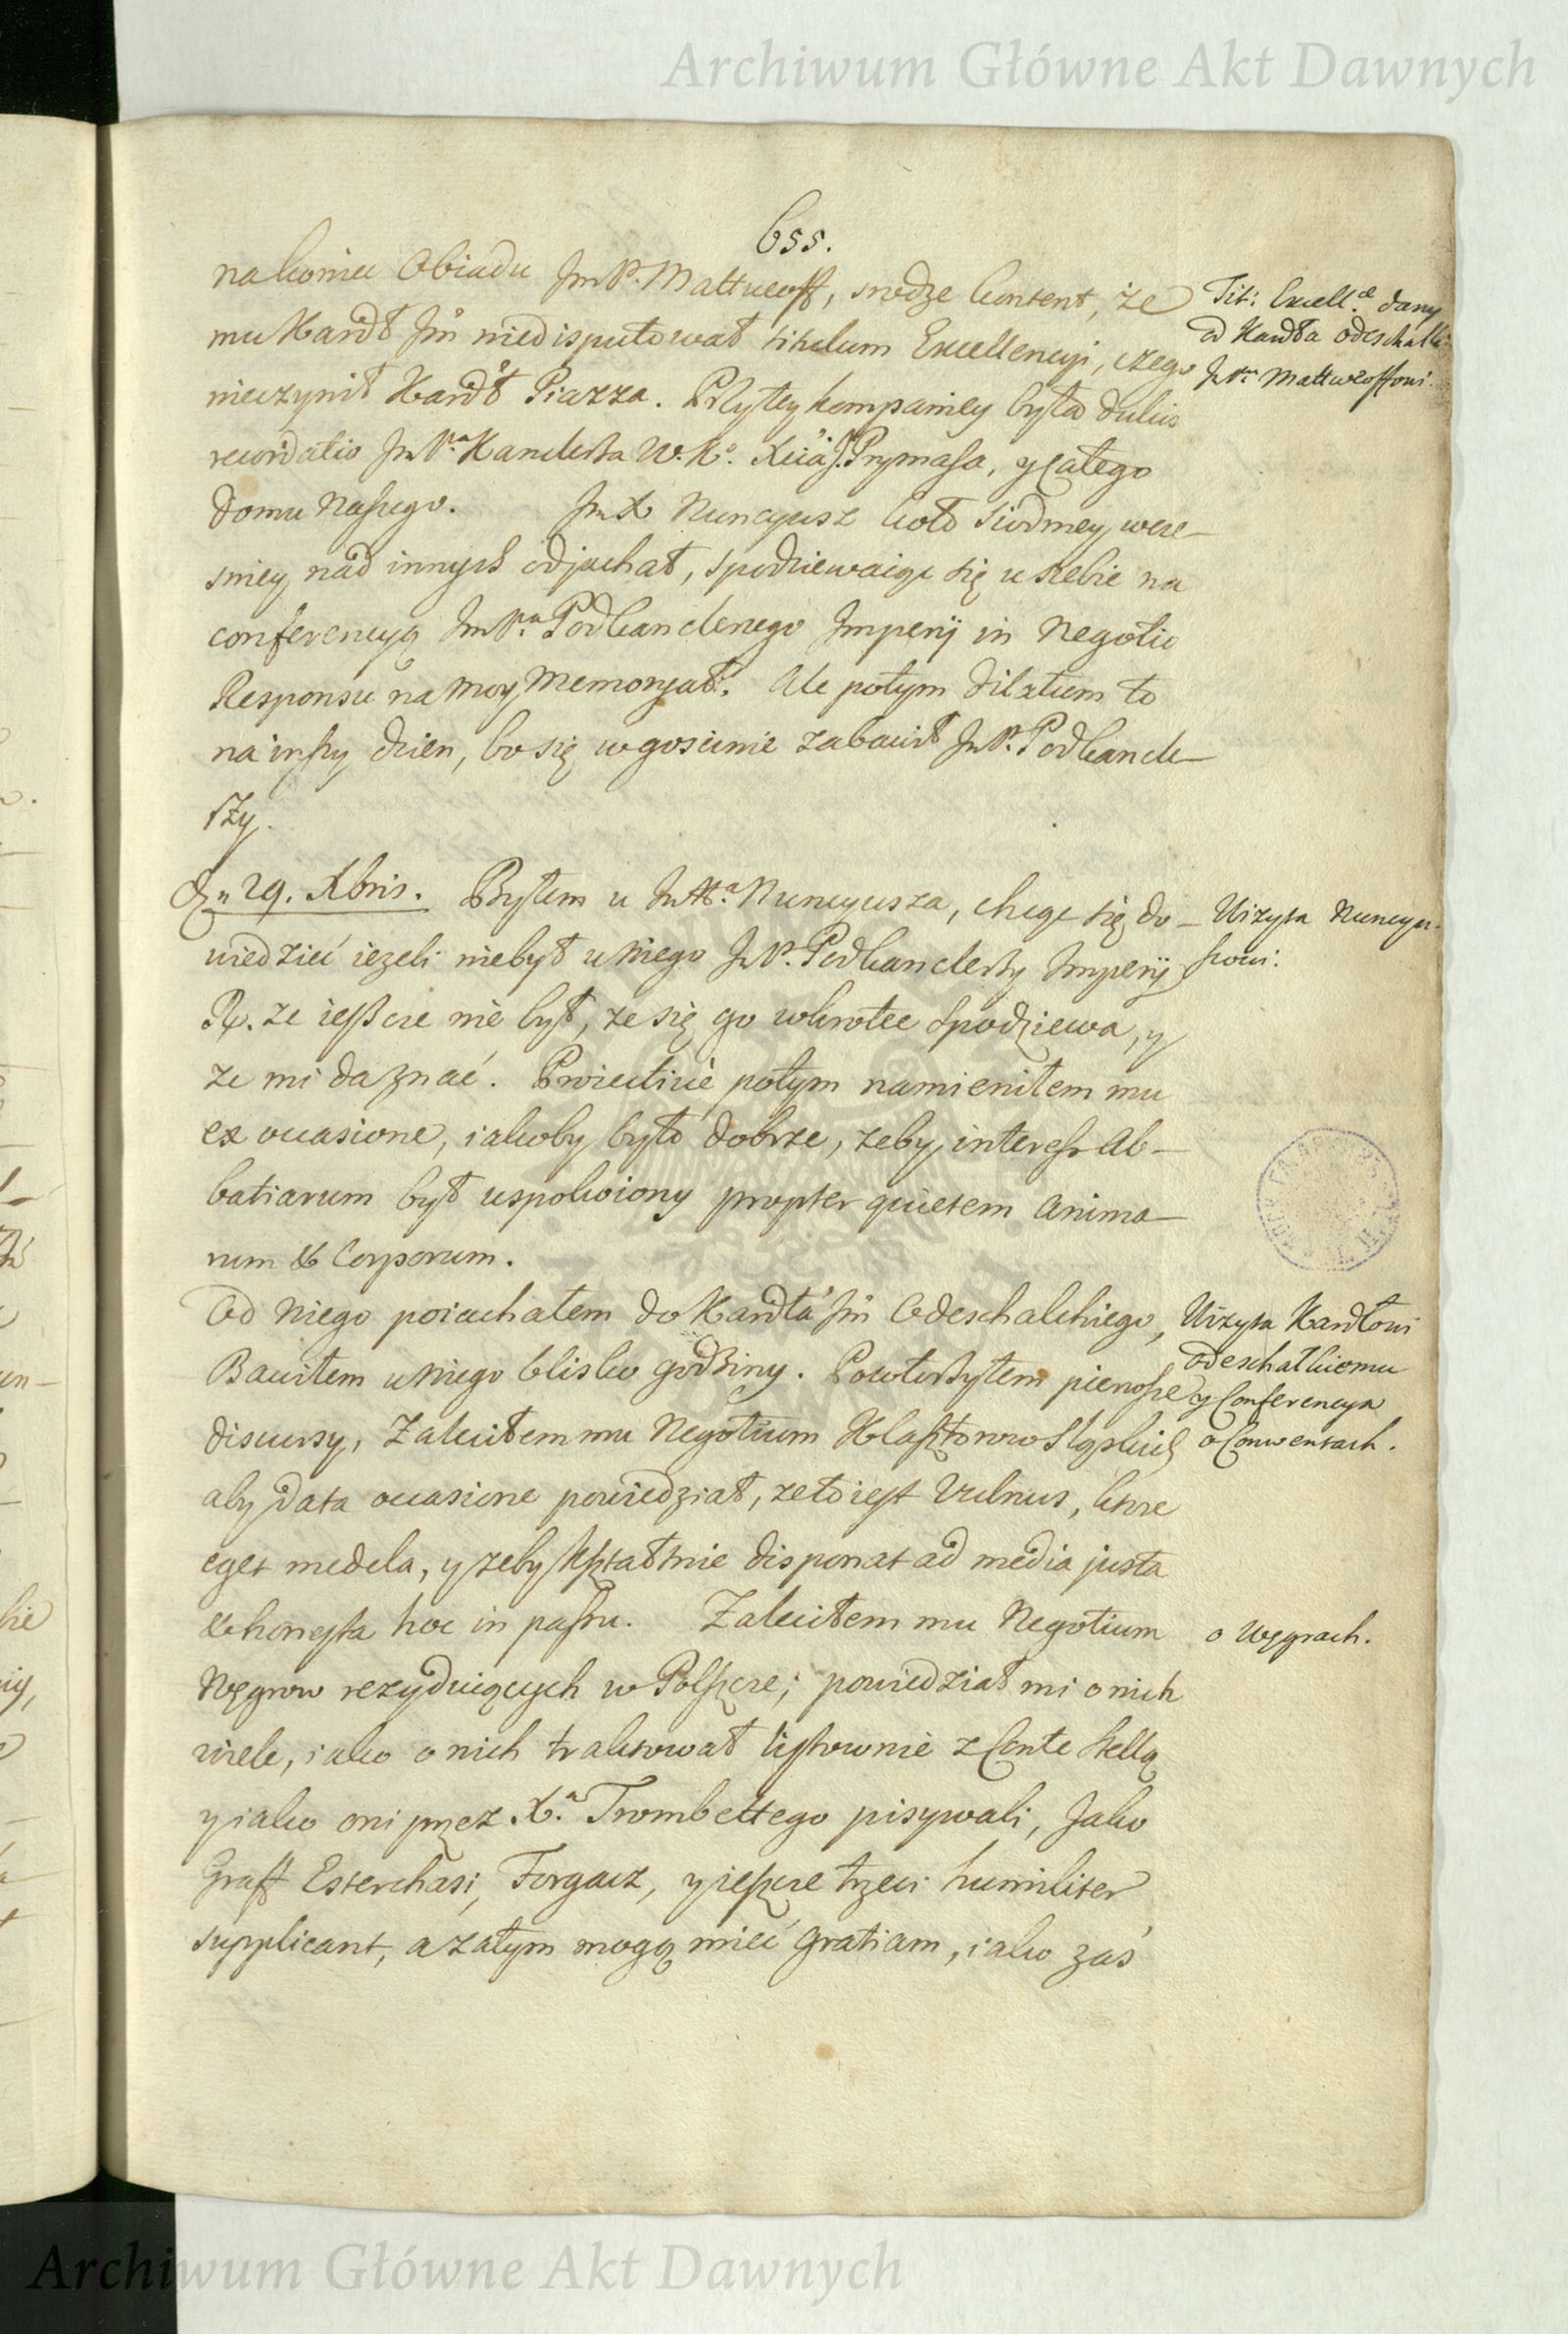 Archiwum Główne Akt Dawnych
655.
na koniec Obiadu Jm P. Mattueoff, srodze kontent, że
mu Kardł Jm̃ niedisputował titulum Excellencyi, czego
nieczynił Kardł Piazza. Przytey kompaniey była dulcis
recordatio Jm Pna Kanclerza W. Ko. Xcia J. Prymasa, y całego
Domu Naszego. Jm X Nuncyusz koło siodmey wcze-
sniey nad innych odjachał, spodziewaiąc się u siebie na
conferencyą Jm Pna Podkanclerzego Imperij in Negotio
Responsu na moy Memoryał. Ale potym dilatum to
na inszy dzien, bo się w goscinie zabawił Jm P. Podkancle-
rzy.
Dn 29. Xbris. Byłem u Jm Xa Nuncyusza, chcąc się do-
wiedzieć iezeli niebył u niego Jm P. Podkanclerzy Imperij
Rx. ze ieszcze nie był, ze się go wkrotce spodziewa, y
ze mi da znać. Prziectiwie potym namieniłem mu
ex occasione, iakoby było dobrze, zeby interess Ab-
batiarum był uspokoiony propter quietem anima-
rum & Corporum.
Od niego poiachałem do Kardła Jm̃ Odeschalchiego,
Bawiłem u niego blisko godziny. Powtorzyłem pierwsze
discursy, Zaleciłem mu Negotium Klasztorow Sląskich
aby data occasione powiedział, ze to iest Vulnus, ktore
eget medela, y zeby ksztaltnie disponat ad media justa
& honesta hoc in passu. Zaleciłem mu Negotium
Węgrow rezyduiących w Polszcze; powiedział mi o nich
wiele, iako o nich traktował listownie z Conte Stellą
y iako oni przez Xa Trombettego pisywali, Jako
Graff Esterchasi, Forgacz, y ieszcze trzeci humiliter
supplicant, a zatym mogą mieć gratiam, iako zaś
Tit: Excell.ae dany
od Kardła odeschalki
Jm Pnu Mattweoffowi.
Wizyta Nuncyu-
szowi.
Wizyta Kardłowi
odeschalkiemu
y Conferencya
o Conwentach.
o Węgrach.
Archiwum Główne Akt Dawnych